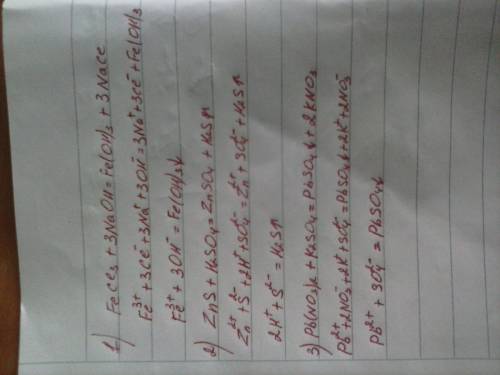 1) FeCl₃ + 3NaOH = Fe(OH)₃ + 3NaCl
Fe³⁺ + 3Cl⁻ + 3Na⁺ + 3OH⁻ = 3Na⁺ + 3Cl⁻ + Fe(OH)₃
Fe³⁺ + 3OH⁻ = Fe(OH)₃↓
2) ZnS + H₂SO₄ = ZnSO₄ + H₂S↑
Zn²⁺ + S²⁻ + 2H⁺ + SO₄²⁻ = Zn²⁺ + SO₄²⁻ + H₂S↑
2H⁺ + S²⁻ = H₂S↑
3) Pb(NO₃)₂ + K₂SO₄ = PbSO₄↓ + 2KNO₃
Pb²⁺ + 2NO₃⁻ + 2K⁺ + SO₄²⁻ = PbSO₄↓ + 2K⁺ + 2NO₃⁻
Pb²⁺ + SO₄²⁻ = PbSO₄↓